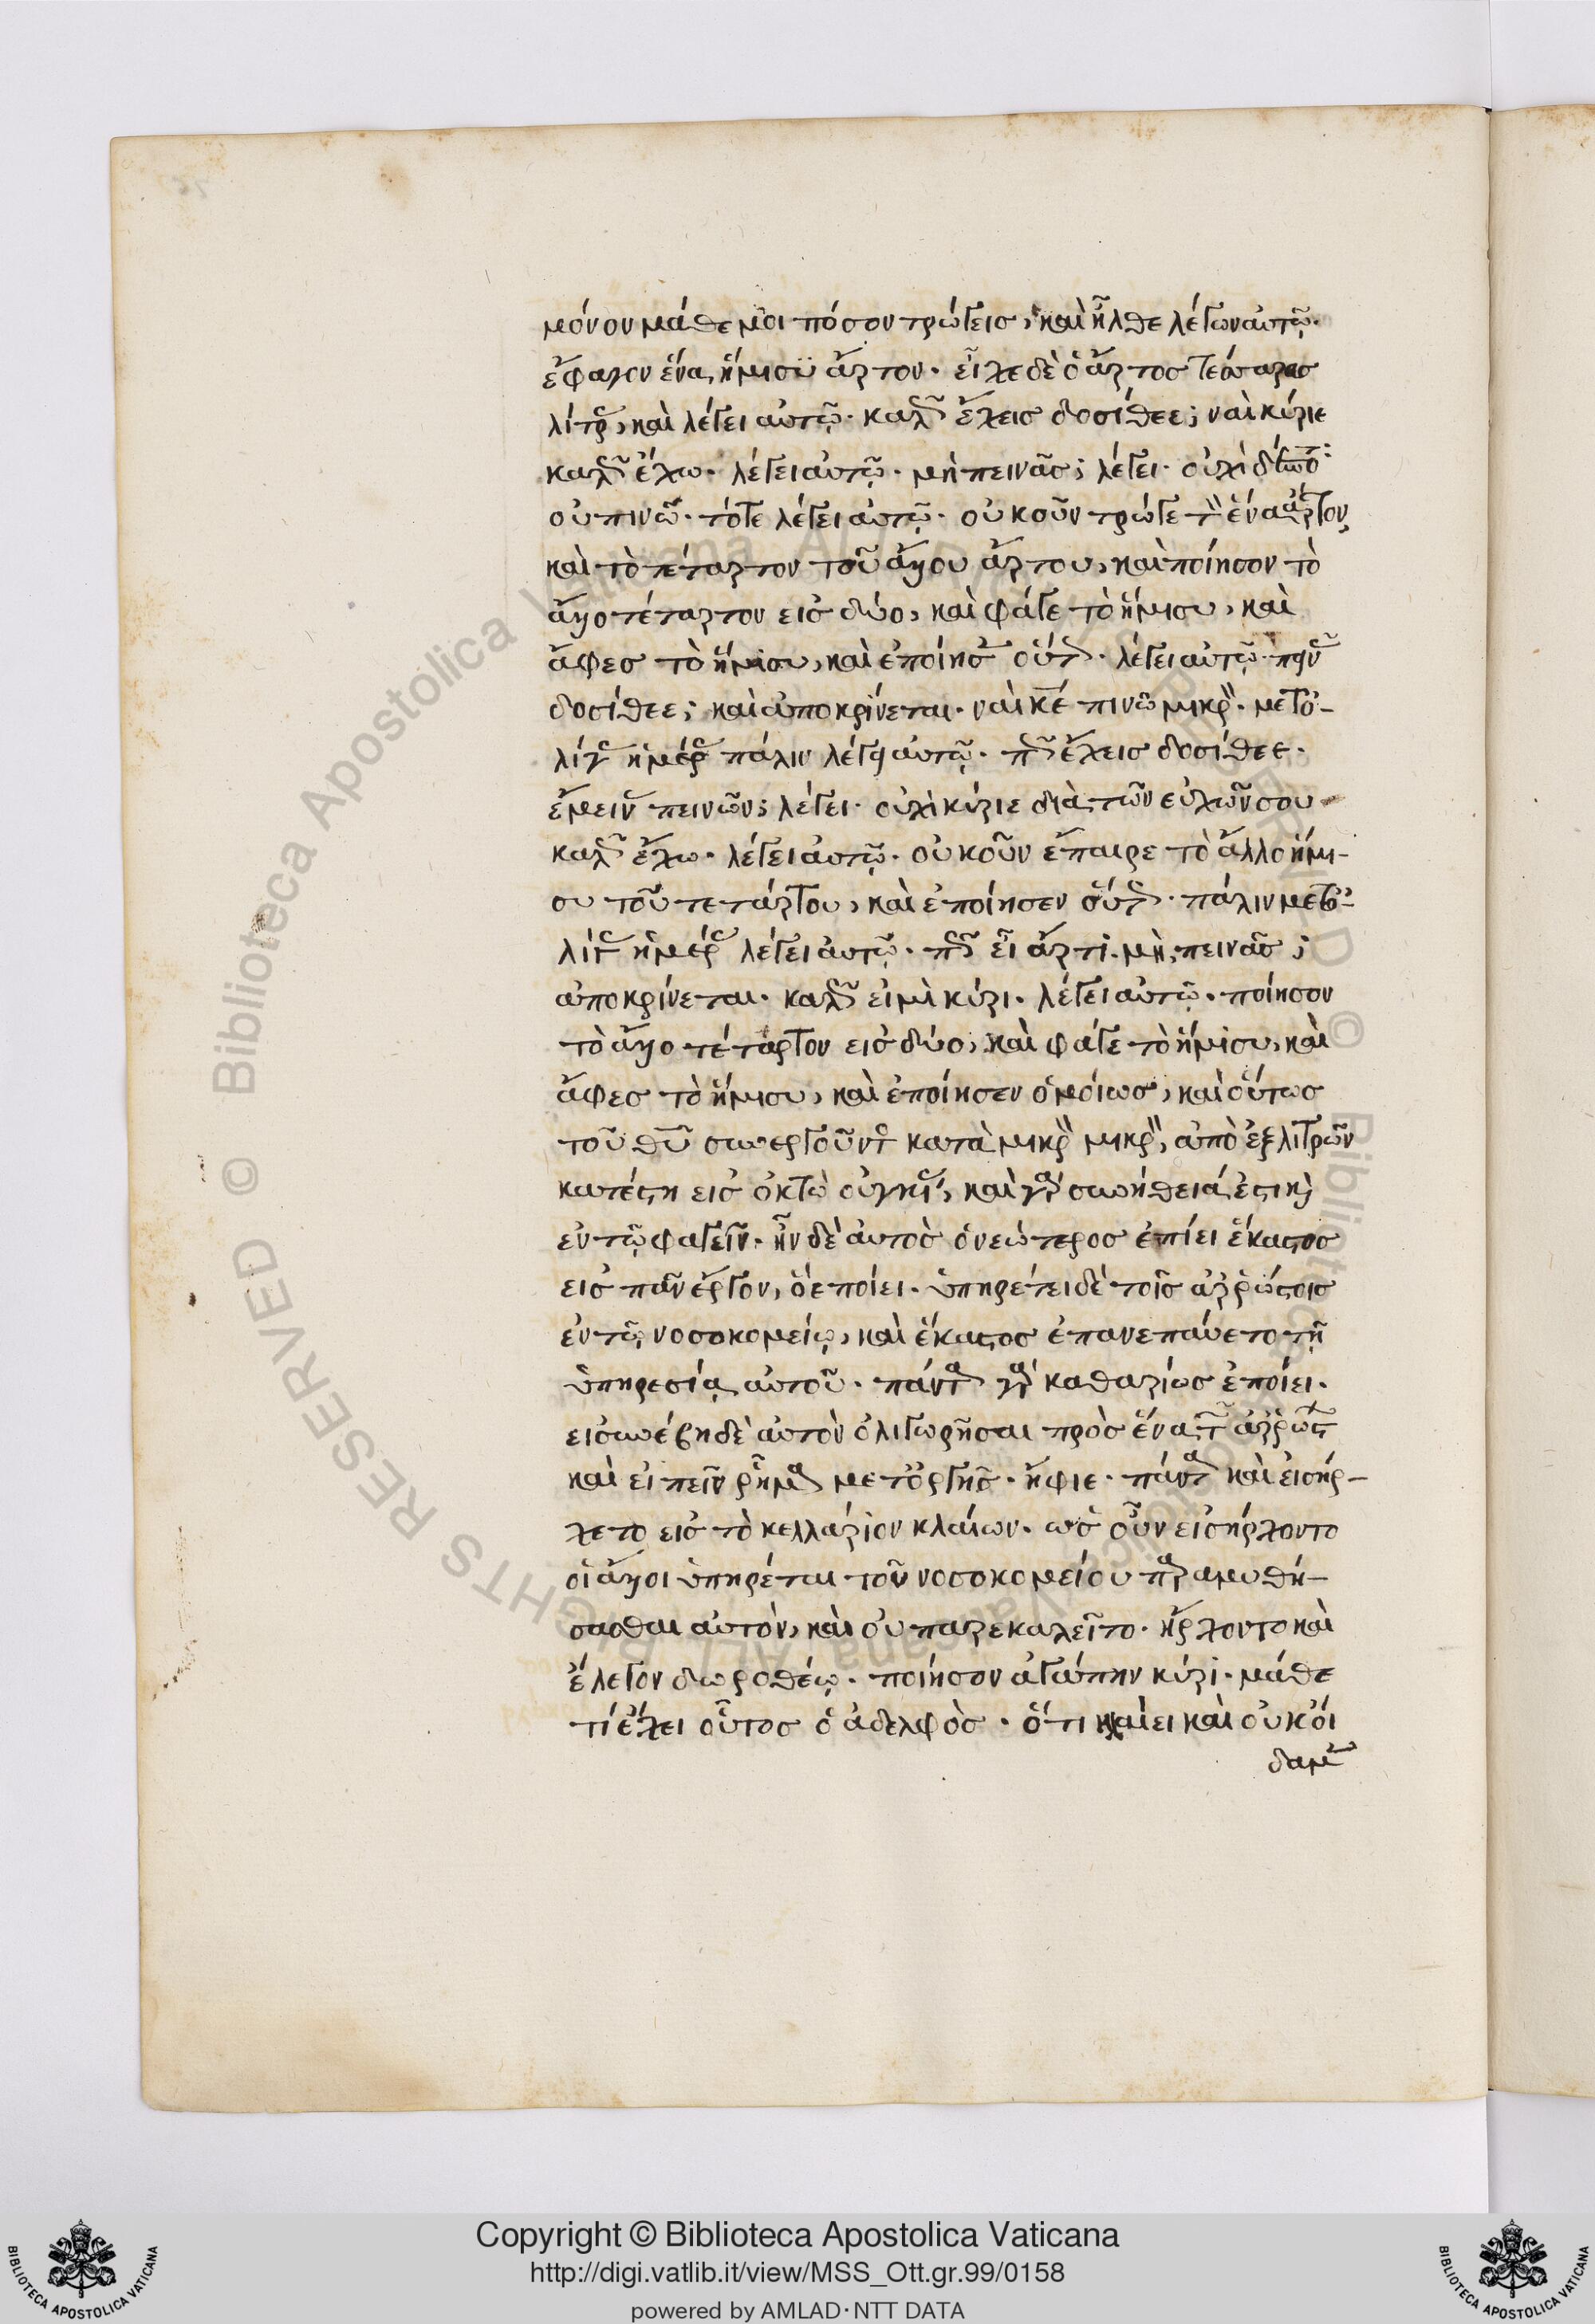 μόνον μάθε μοι πόσον τρώγεις, καὶ ἦλθε λέγων αὐτῷ.
ἔφαγον ἕνα ἥμισυ ἄρτον. εἶχε δὲ ὁ ἄρτος τέσσαρας
λίτρας, καὶ λέγει αὐτῷ. καλῶς ἔχεις δοσίθεε; ναὶ κύριε
καλῶς ἔχω. λέγει αὐτῷ. μὴ πεινᾶς; λέγει. οὐχὶ δέσποτα
οὐ πινῶ. τότε λέγει αὐτῷ. οὐκοῦν τρώγε τὸν ἕνα ἄρτον,
καὶ τὸ τέταρτον τοῦ ἄλλου ἄρτου, καὶ ποίησον τὸ
ἄλλο τέταρτον εἰς δύο, καὶ φάγε τὸ ἥμισυ, καὶ
ἄφες τὸ ἥμισυ, καὶ ἐποίησεν οὕτως. λέγει αὐτῷ. πεινᾷς
δοσίθεε; καὶ ἀποκρίνεται. ναὶ κε πινῶ μικρόν. μετ' ὀ-
λίγας ἡμέρας πάλιν λέγει αὐτῷ. πῶς ἔχεις δοσίθεε.
ἔμεινας πεινῶν; λέγει. οὐχὶ κύριε διὰ τῶν εὐχῶν σου
καλῶς ἔχω. λέγει αὐτῷ. οὐκοῦν ἔπαιρε τὸ ἄλλο ἥμι-
συ τοῦ τετάρτου, καὶ ἐποίησεν οὕτως. πάλιν μετ' ὀ-
λίγας ἡμέρας λέγει αὐτῷ. πῶς εἶ ἄρτι. μὴ πεινᾶς;
ἀποκρίνεται. καλῶς εἰμὶ κύρι. λέγει αὐτῷ. ποίησον
τὸ ἄλλο τέταρτον εἰς δύο, καὶ φάγε τὸ ἥμισυ, καὶ
ἄφες τὸ ἥμισυ, καὶ ἐποίησεν ὁμοίως, καὶ οὕτως
τοῦ θυ συνεργοῦντος κατὰ μικρὸν μικρὸν, ἀπὸ ἓξ λιτρῶν
κατέστη εἰς ὀκτὼ οὐγκίας, καὶ γὰρ συνήθειά ἐστι καὶ
ἐν τῷ φαγεῖν. ἦν δὲ αὐτὸς ὁ νεώτερος ἐπίει ἕκαστος
εἰς πᾶν ἔργον, ὃ ἐποίει. ὑπηρέτει δὲ τοῖς ἀρρώστοις
ἐν τῷ νοσοκομείῳ, καὶ ἕκαστος ἐπανεπαύετο τῇ
ὑπηρεσίᾳ αὐτοῦ. πάντα γὰρ καθαρίως ἐποίει.
εἰ συνέβη δὲ αὐτὸν ὀλιγωρῆσαι πρὸς ἕνα τῶν ἀρρώστων
καὶ εἰπεῖν ῥῆμα μετ' ὀργῆς. ἤφιε. πάντα καὶ εἰσήρ-
χετο εἰς τὸ κελλαρίον κλαίων. ὡς οὖν εἰσήρχοντο
οἱ ἄλλοι ὑπηρέται τοῦ νοσοκομείου παραμυθή-
σασθαι αὐτὸν, καὶ οὐ παρεκαλεῖτο. ἤρχοντο καὶ
ἔλεγον δωροθέῳ. ποίησον ἀγάπην κύρι. μάθε
τί ἔχει οὗτος ὁ ἀδελφὸς. ὅτι κλαίει καὶ οὐκ οἴ
δαμεν
Copyright © Biblioteca Apostolica Vaticana
http://digi.vatlib.it/view/MSS_Ott.gr.99/0158
powered by AMLAD·NTT DATA